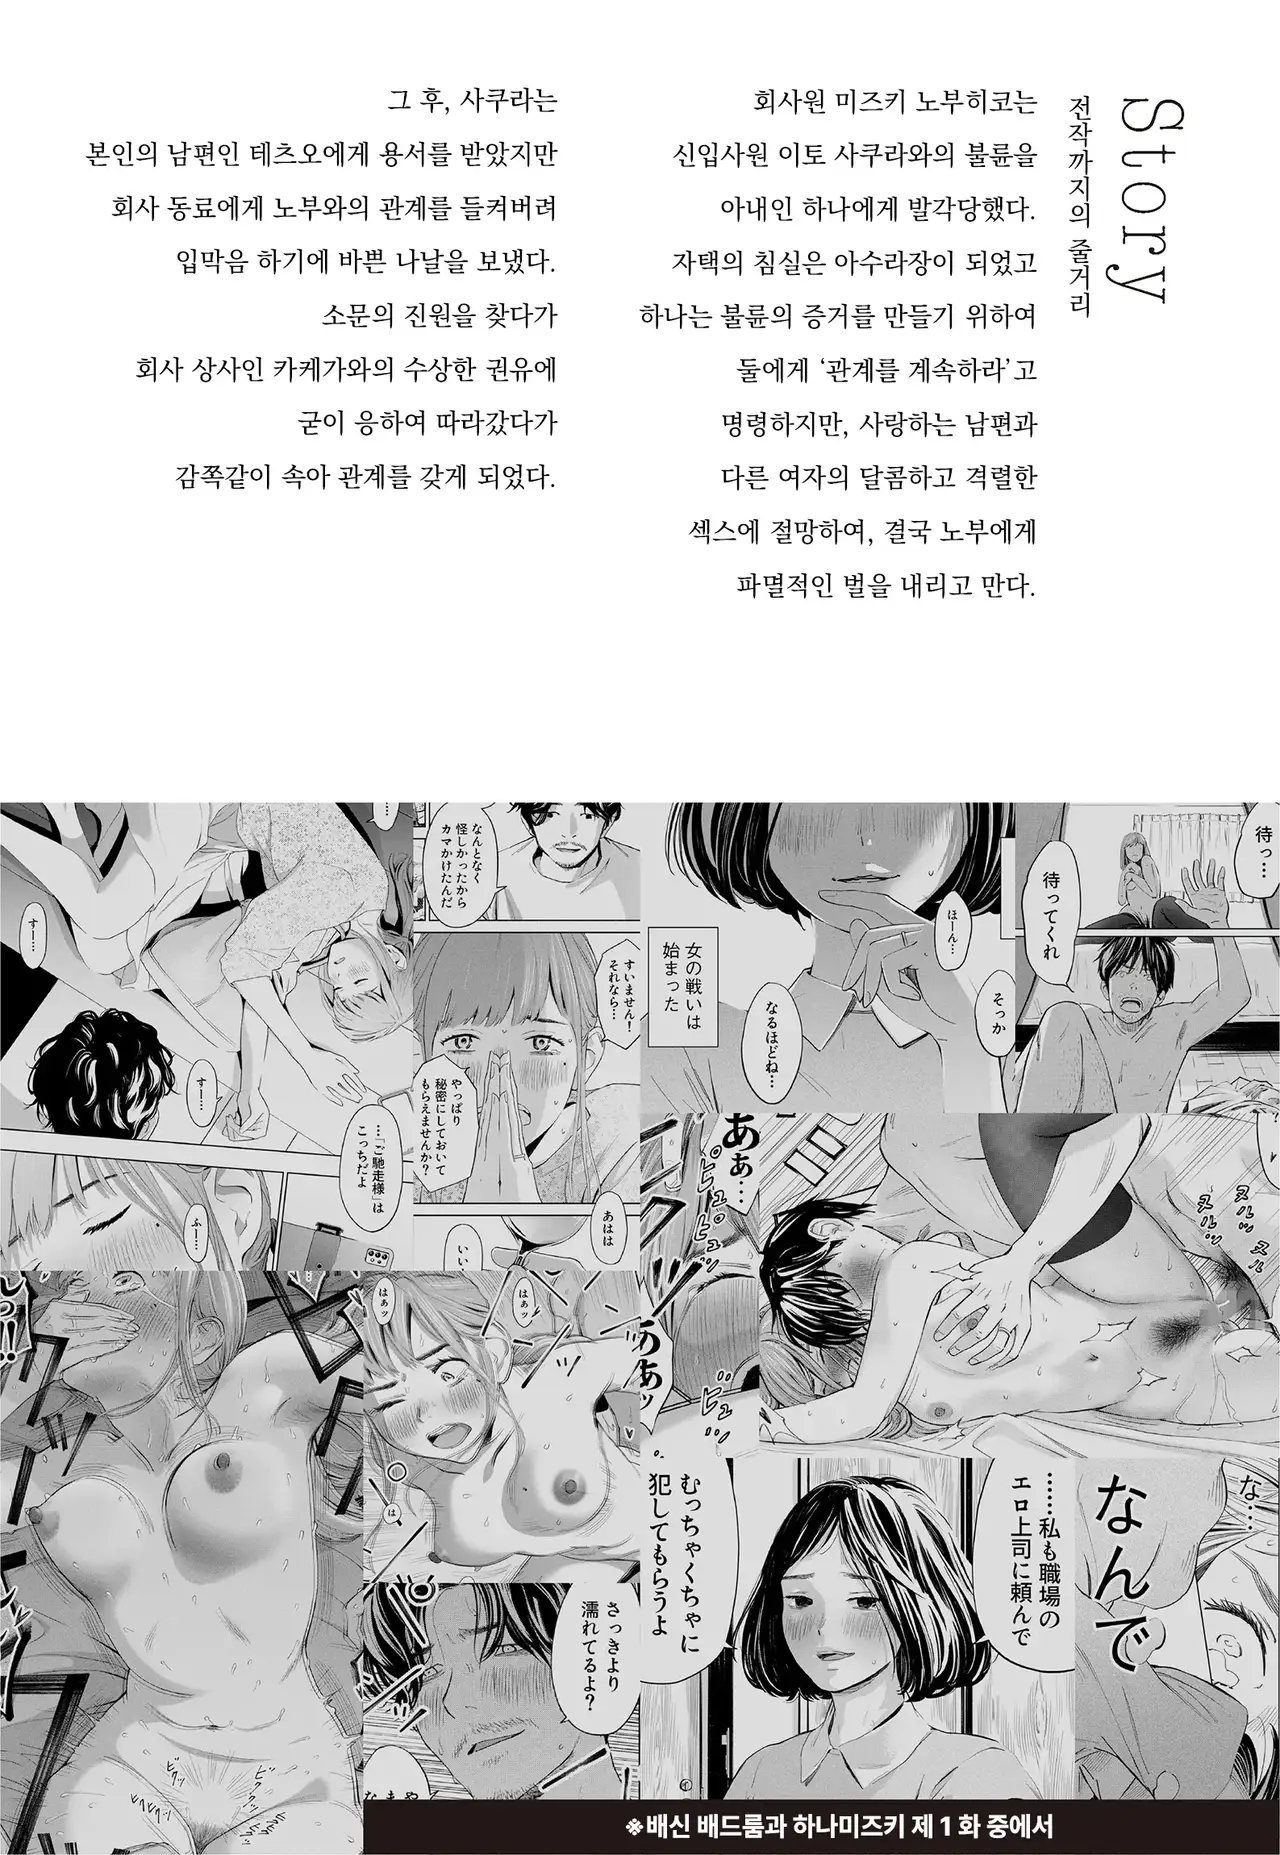 Story
전작까지의 줄거리
회사원 미즈키 노부히코는
신입사원 이토 사쿠라와의 불륜을
아내인 하나에게 발각당했다.
자택의 침실은 아수라장이 되었고
하나는 불륜의 증거를 만들기 위하여
둘에게 ‘관계를 계속하라’고
명령하지만, 사랑하는 남편과
다른 여자의 달콤하고 격렬한
섹스에 절망하여, 결국 노부에게
파멸적인 벌을 내리고 만다.
그 후, 사쿠라는
본인의 남편인 테츠오에게 용서를 받았지만
회사 동료에게 노부와의 관계를 들켜버려
입막음 하기에 바쁜 나날을 보냈다.
소문의 진원을 찾다가
회사 상사인 카케가와의 수상한 권유에
굳이 응하여 따라갔다가
감쪽같이 속아 관계를 갖게 되었다.
待っ…
待ってくれ
そっか
ほーん…
なるほどね…
女の戦いは
始まった
あぁ…
ピュ
ピュピュ
ピュッ
ああッ
ヌルッ
ヌルッ
な…
なんで
……私も職場の
エロ上司に頼んで
むっちゃくちゃに
犯してもらうよ
なんとなく
怪しかったから
カマかけたんだ
すいません！
それなら…
やっぱり
秘密にしておいて
もらえませんか？
あはは
いい
…
すー…
すー…
…「ご馳走様」は
こっちだよ
ふー…
はぁッ
はぁッ
は
さっきより
濡れてるよ？
なもや
ビクッ
ビクッ
※배신 배드룸과 하나미즈키 제 1 화 중에서